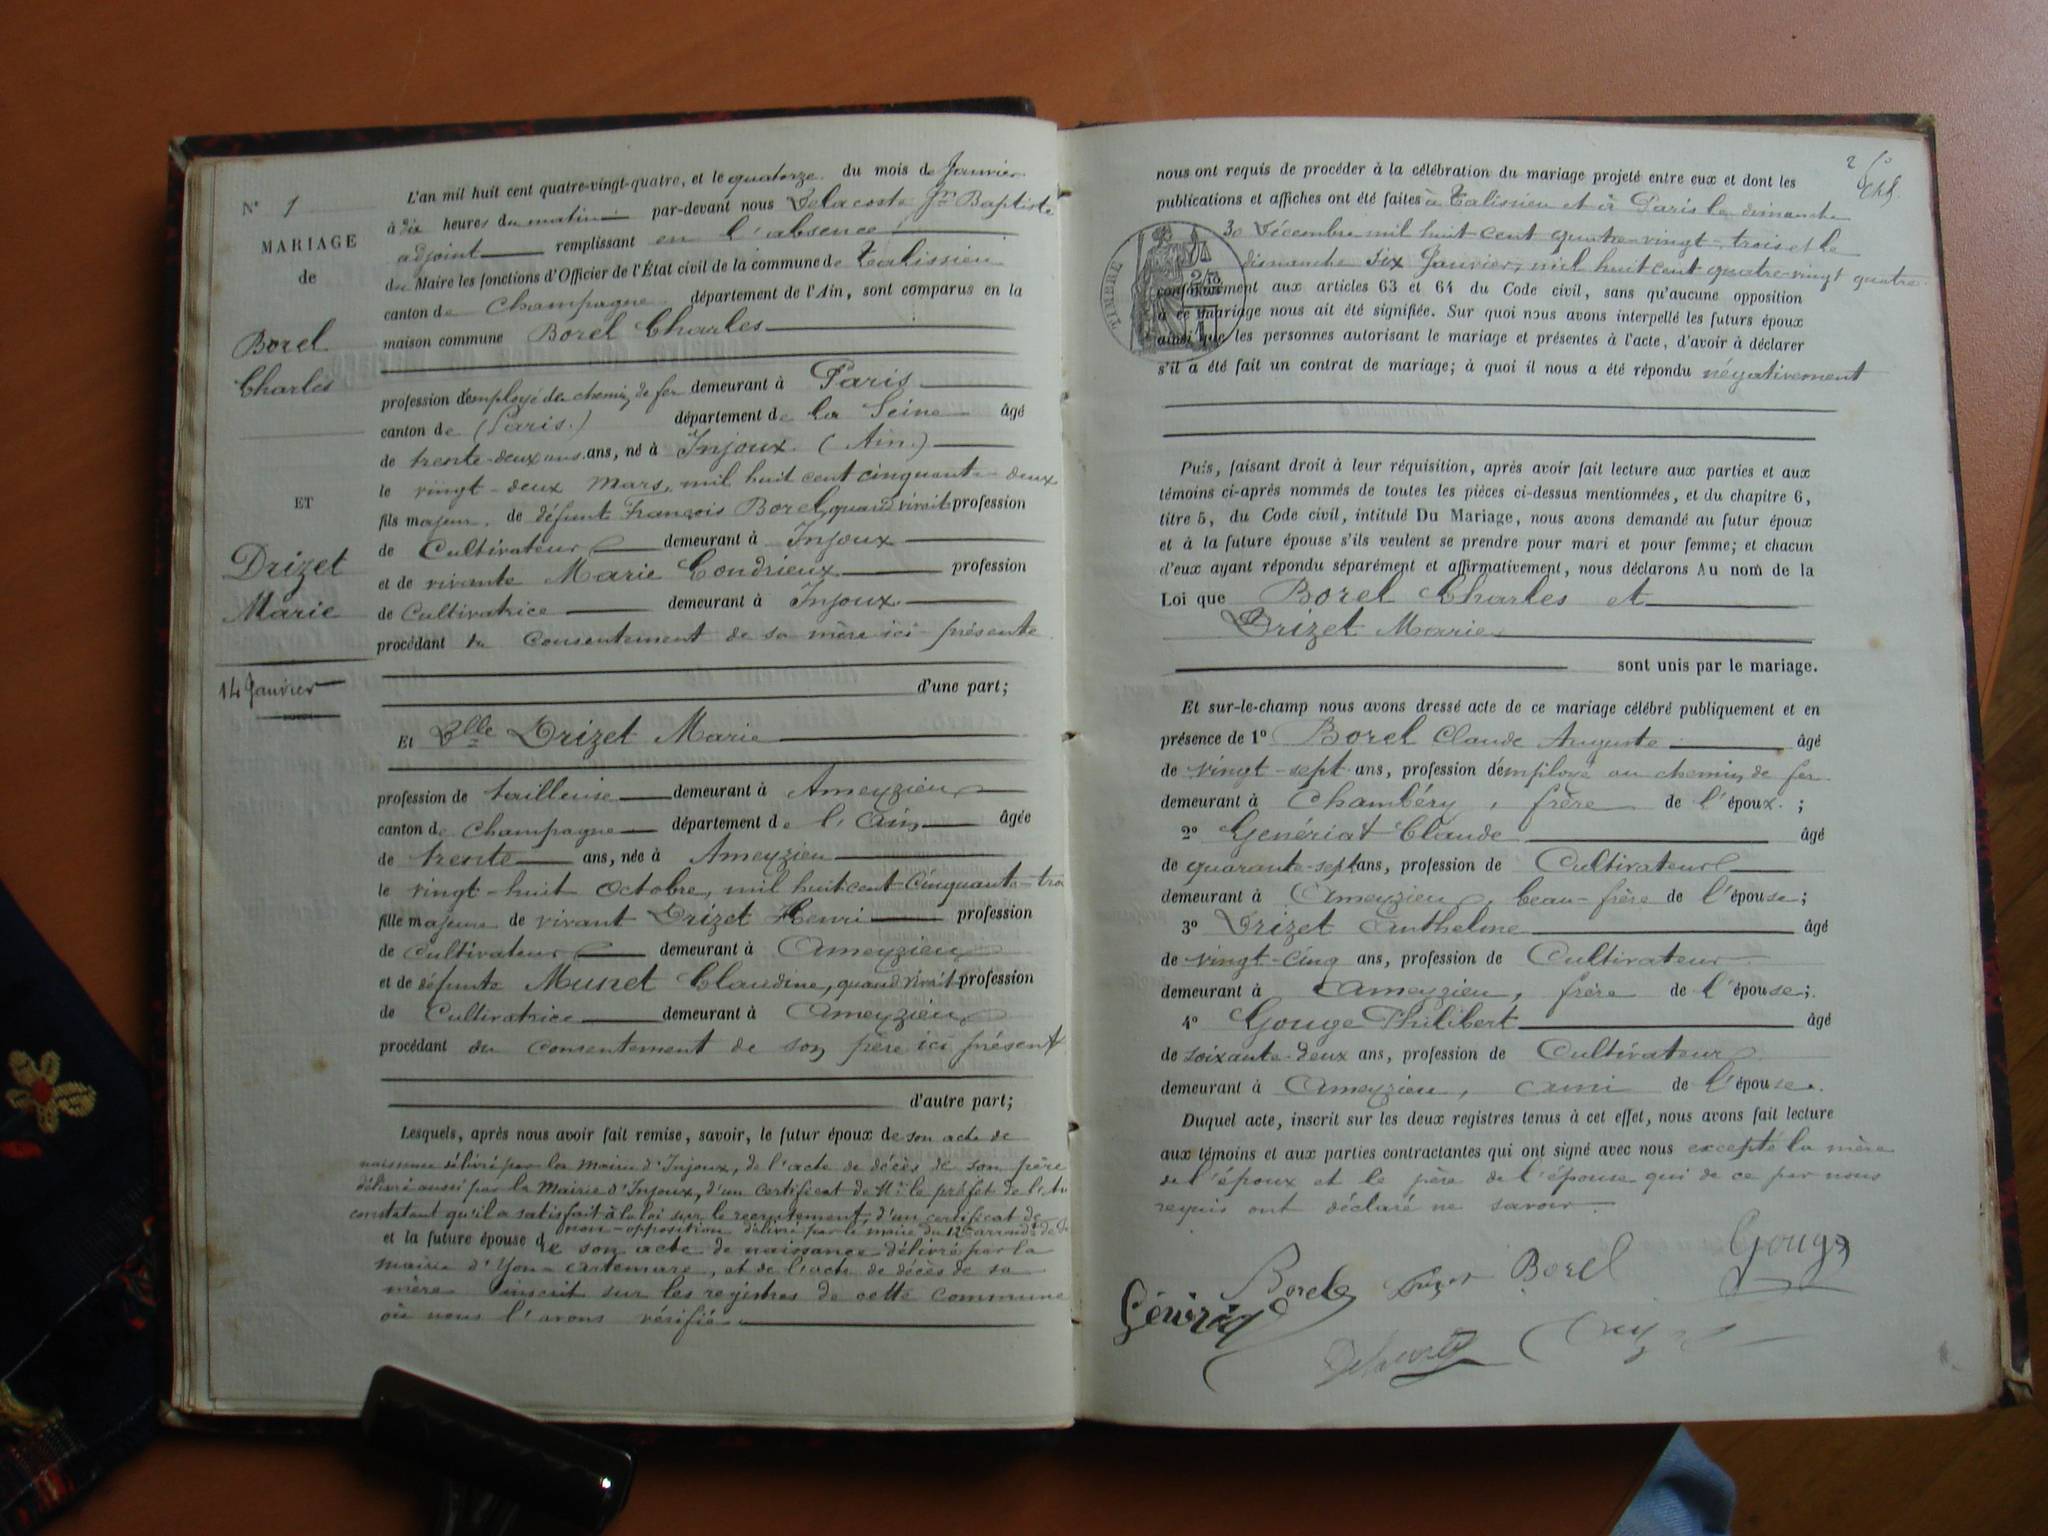 N° 1
MARIAGE
de
Borel
Charles
ET
Drizet
Marie
14 Janvier
L'an mil huit cent quatre-vingt-quatre, et le quatorze du mois de Janvier
à dix heures du matin par-devant nous Delacoste Jn Baptiste
adjoint remplissant en l'absence
du Maire les fonctions d'Officier de l'État civil de la commune de Talissieu
canton de Champagne département de l'Ain, sont comparus en la
maison commune Borel Charles
profession d'employé de chemin de fer demeurant à Paris
canton de (Paris.) département de la Seine âgé
de trente-deux ans ans, né à Injoux (Ain.)
le vingt-deux Mars, mil huit cent cinquante-deux
fils majeur de défunt François Borel, quand vivait profession
de Cultivateur demeurant à Injoux
et de vivante Marie Coudrieux profession
de Cultivatrice demeurant à Injoux
procédant du consentement de sa mère ici présente
d'une part;
Et Dlle Drizet Marie
profession de tailleuse demeurant à Ameyzieu
canton de Champagne département de l'Ain âgée
de trente ans, née à Ameyzieu
le vingt-huit Octobre, mil huit cent Cinquante-trois
fille majeure de vivant Drizet Henri profession
de cultivateur demeurant à Ameyzieu
et de défunte Munet Claudine, quand vivait profession
de Cultivatrice demeurant à Ameyzieu
procédant du consentement de son père ici présent
d'autre part;
Lesquels, après nous avoir fait remise, savoir, le futur époux de son acte de
naissance délivré par la Mairie d'Injoux, de l'acte de décès de son père
délivré aussi par la Mairie d'Injoux, d'un certificat de Mr le préfet de l'Ain
constatant qu'il a satisfait à la loi sur le recrutement, d'un certificat de
non-opposition délivré par le maire du 12e arrondt de
et la future épouse de son acte de naissance délivré par la
mairie d'Yon-Artemare, et de l'acte de décès de sa
mère inscrit sur les registres de cette commune
où nous l'avons vérifié.
2
nous ont requis de procéder à la célébration du mariage projeté entre eux et dont les
publications et affiches ont été faites à Talissieu et à Paris le dimanche
30 Décembre mil huit cent quatre-vingt-trois et le
dimanche six Janvier, mil huit cent quatre-vingt quatre
TIMBRE
conformément aux articles 63 et 64 du Code civil, sans qu'aucune opposition
à ce mariage nous ait été signifiée. Sur quoi nous avons interpellé les futurs époux
ainsi que les personnes autorisant le mariage et présentes à l'acte, d'avoir à déclarer
s'il a été fait un contrat de mariage; à quoi il nous a été répondu négativement
Puis, faisant droit à leur réquisition, après avoir fait lecture aux parties et aux
témoins ci-après nommés de toutes les pièces ci-dessus mentionnées, et du chapitre 6,
titre 5, du Code civil, intitulé Du Mariage, nous avons demandé au futur époux
et à la future épouse s'ils veulent se prendre pour mari et pour femme; et chacun
d'eux ayant répondu séparément et affirmativement, nous déclarons Au nom de la
Loi que Borel Charles et
Drizet Marie
sont unis par le mariage.
Et sur-le-champ nous avons dressé acte de ce mariage célébré publiquement et en
présence de 1° Borel Claude Auguste âgé
de vingt-sept ans, profession d'employé au chemin de fer
demeurant à Chambéry, frère de l'époux.;
2° Genériat Claude âgé
de quarante-sept ans, profession de Cultivateur
demeurant à Ameyzieu, beau-frère de l'épouse;
3° Drizet Anthelme âgé
de vingt-cinq ans, profession de Cultivateur
demeurant à Ameyzieu, frère de l'épouse;
4° Gouge Philibert âgé
de soixante-deux ans, profession de Cultivateur
demeurant à Ameyzieu, ami de l'épouse.
Duquel acte, inscrit sur les deux registres tenus à cet effet, nous avons fait lecture
aux témoins et aux parties contractantes qui ont signé avec nous excepté la mère
de l'époux et le père de l'épouse qui de ce par nous
requis ont déclaré ne savoir.
Borel Drizet Borel Gouge
Génériat